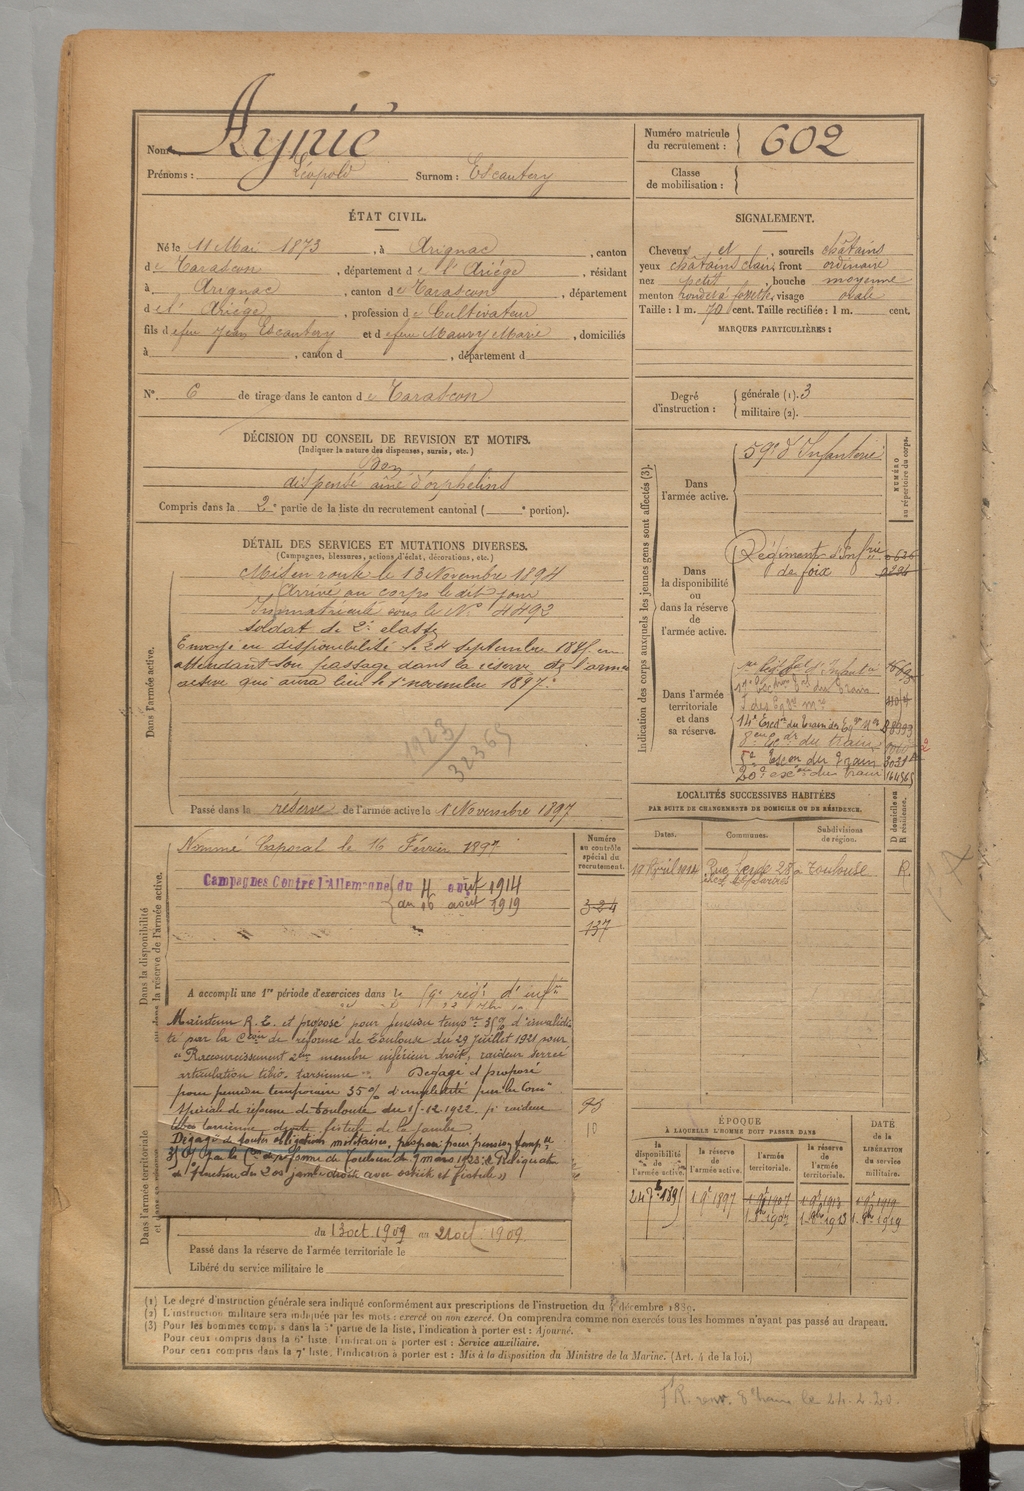 Nom Aynié
Prénoms : Léopold Surnom : Escautery
Numéro matricule
du recrutement : 602
Classe
de mobilisation :
ÉTAT CIVIL.
Né le 11 Mai 1873, à Arignac, canton
de Tarascon, département de l'Ariège, résidant
à Arignac, canton de Tarascon, département
de l'Ariège, profession de Cultivateur
fils de feu Jean Escautery et de feue Mauvy Marie, domiciliés
à , canton d , département d
N° 6 de tirage dans le canton de Tarascon
SIGNALEMENT.
Cheveux et sourcils châtains
yeux châtains clair, front ordinaire
nez petit, bouche moyenne
menton rond et à fossette, visage ovale
Taille : 1 m. 70 cent. Taille rectifiée : 1 m. cent.
MARQUES PARTICULIÈRES :
Degré
d'instruction :
générale (1). 3
militaire (2).
DÉCISION DU CONSEIL DE REVISION ET MOTIFS.
(Indiquer la nature des dispenses, sursis, etc.)
Bon
dispensé aîné d'orphelins
Compris dans la 2e partie de la liste du recrutement cantonal ( e portion).
DÉTAIL DES SERVICES ET MUTATIONS DIVERSES.
(Campagnes, blessures, actions d'éclat, décorations, etc.)
Dans l'armée active.
Mis en route le 13 Novembre 1894
Arrivé au corps le dit jour
Immatriculé sous le N° 4492
soldat de 2e classe
Envoyé en disponibilité le 24 septembre 1895 en
attendant son passage dans la réserve de l'armée
active qui aura lieu le 1er novembre 1897.
1923/32365
Passé dans la réserve de l'armée active le 1 Novembre 1897
Indication des corps auxquels les jeunes gens sont affectés (3).
NUMÉRO
au répertoire du corps.
Dans
l'armée active.
59e d'Infanterie
Dans
la disponibilité
ou
dans la réserve
de
l'armée active.
Régiment d'Infrie
de foix
Dans l'armée
territoriale
et dans
sa réserve.
14e Escon du Train des Eq
5e Escon du Train
20e escon du Train
LOCALITÉS SUCCESSIVES HABITÉES
PAR SUITE DE CHANGEMENTS DE DOMICILE OU DE RÉSIDENCE.
Dates. Communes. Subdivisions
de région.
D domicile ou
R résidence.
28 Toulouse R.
Dans la disponibilité
ou dans la réserve de l'armée active.
Numéro
au contrôle
spécial du
recrutement.
Nommé Caporal le 16 Février 1897
Campagnes Contre l'Allemagne du 4 août 1914
au 16 août 1919
324
137
A accompli une 1re période d'exercices dans le 59e régt d'inftie
Maintenu R. T. et proposé pour pension tempre 35% d'invalidi-
té par la Con de réforme de Toulouse du 29 juillet 1921 pour
"Raccourcissement membre inférieur droit, raideur serrée
articulation tibio tarsienne". Dégagé et proposé
pour pension temporaire 35% d'invalidité par la Comon
spéciale de réforme de Toulouse du 15-12-1922 pr raideur
tibio tarsienne droite fistule de la jambe
Dégagé de toutes obligations militaires, proposé pour pension tempre
35% par la Con de réforme de Toulouse du 7 mars 1923: Reliquats
de fracture du 2 os jambe droite avec ostéite et fistule
Dans l'armée territoriale
du 13 oct. 1909 au 21 oct. 1909
Passé dans la réserve de l'armée territoriale le
Libéré du service militaire le
ÉPOQUE
À LAQUELLE L'HOMME DOIT PASSER DANS
la
disponibilité
de
l'armée active.
la réserve
de
l'armée active.
l'armée
territoriale.
la réserve
de
l'armée
territoriale.
DATÉ
de la
LIBÉRATION
du service
militaire.
24 7b 1895 1 9b 1897 1 9b 1907 1 9b 1913 1 9b 1919
1. 8bre 1907 1. 8bre 1913 1. 8bre 1919
(1) Le degré d'instruction générale sera indiqué conformément aux prescriptions de l'instruction du 8 décembre 1889.
(2) L'instruction militaire sera indiquée par les mots : exercé ou non exercé. On comprendra comme non exercés tous les hommes n'ayant pas passé au drapeau.
(3) Pour les hommes compris dans la 5e partie de la liste, l'indication à porter est : Ajourné.
Pour ceux compris dans la 6e liste, l'indication à porter est : Service auxiliaire.
Pour ceux compris dans la 7e liste, l'indication à porter est : Mis à la disposition du Ministre de la Marine. (Art. 4 de la loi.)